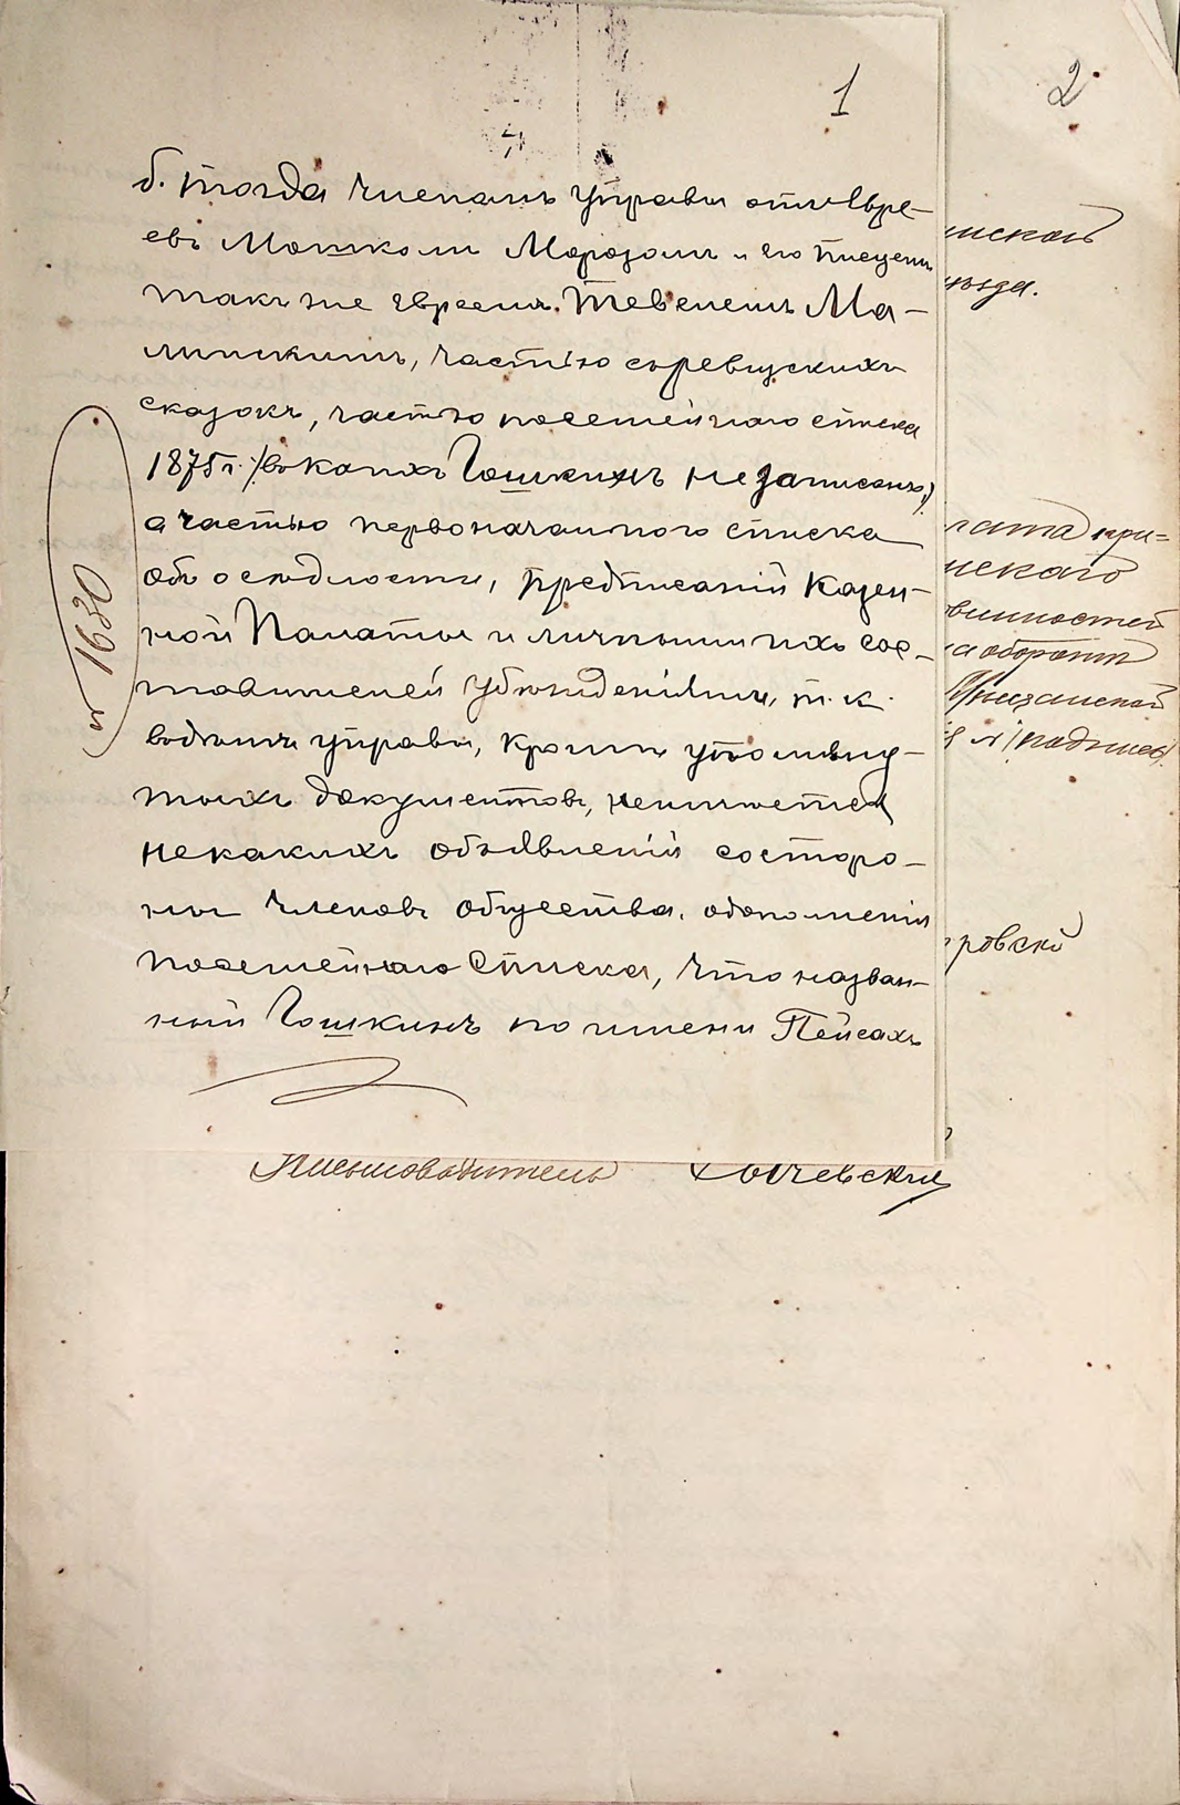 1
2
б. тогда членамъ управы отъ Евре-
евъ Мошкомъ Морозомъ и его писцемъ
такъ же евреемъ Тевелемъ Ма-
линскимъ, частію съ ревизскихъ
сказокъ, частію посемейнаго списка
1875 г. /въ коихъ Гошкинъ незаписанъ/
а частью первоначального списка
объ осѣдлости, предписаній Казен-
ной Палаты и личными ихъ сос-
тавителей убѣжденіями, т. к.
въ дѣлахъ управы, кромѣ упомяну-
тыхъ документовъ, неимѣется
некакихъ объявленій состоро-
ны членовъ общества, одополненіи
посемейнаго списка, что назван-
ный Гошкинъ по имени Пейсахъ
№ 1630
нской
ѣзда.
лата при-
нскаго
винностей
на оборотѣ
подпис
ровскі
Письмоводитель